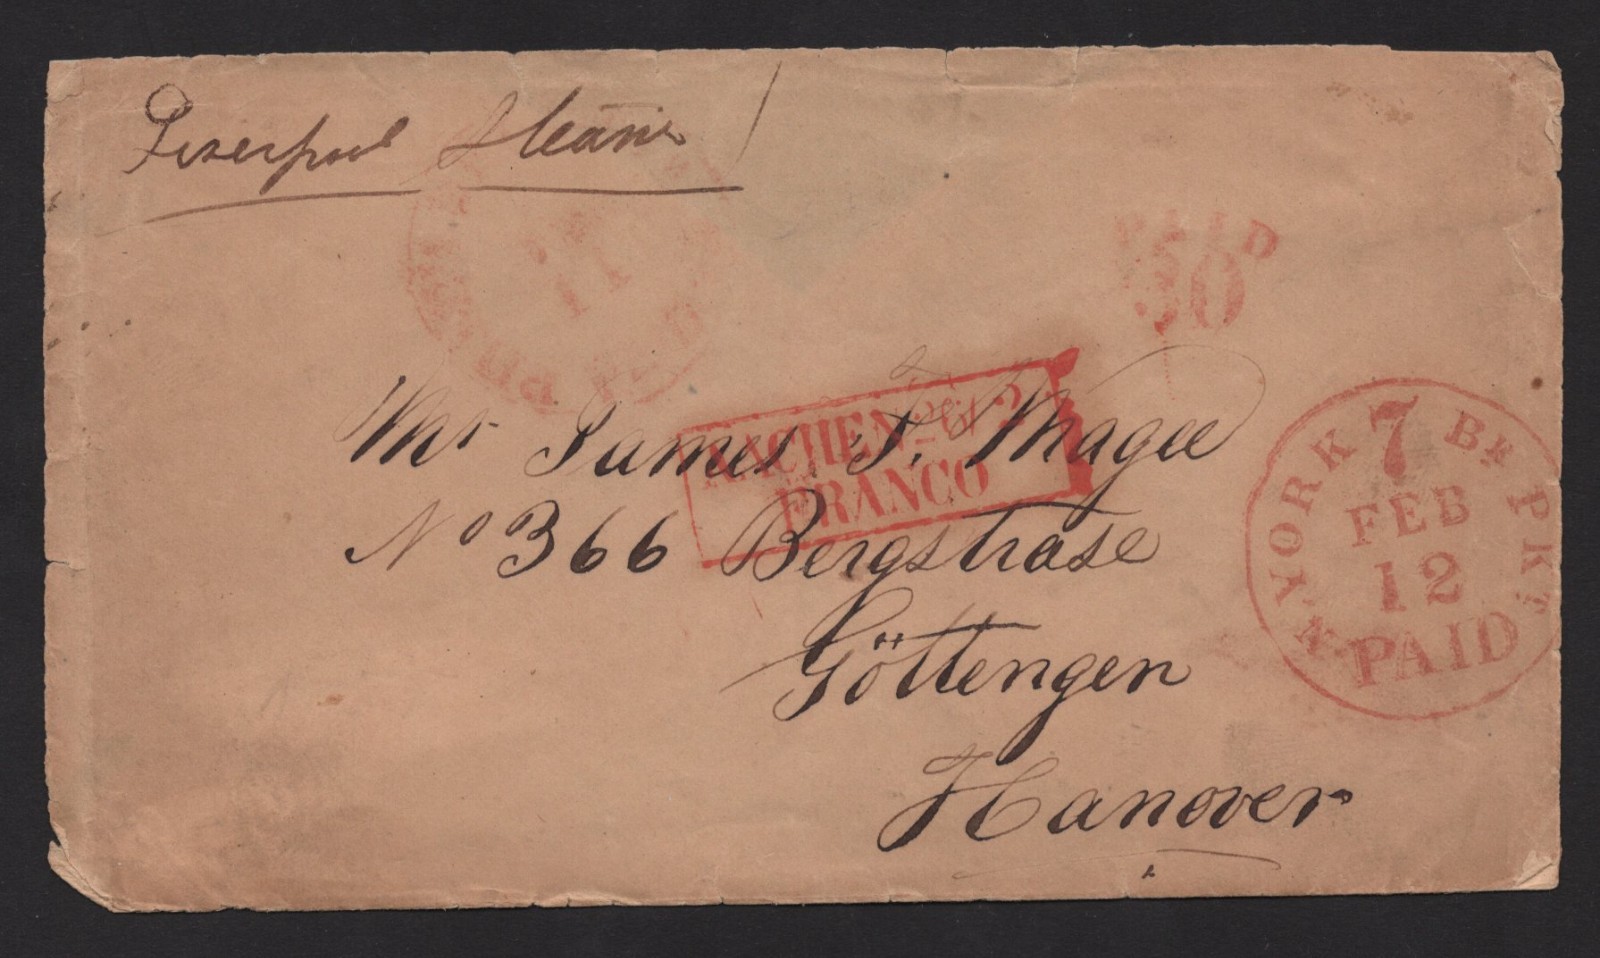 Liverpool Steamer
11
PAID
PAID
30
Mr James F. Magee
AACHEN
FRANCO
No 366 Bergstrase
Göttengen
Hanover
N. YORK 7 BR. PKT.
FEB
12
PAID